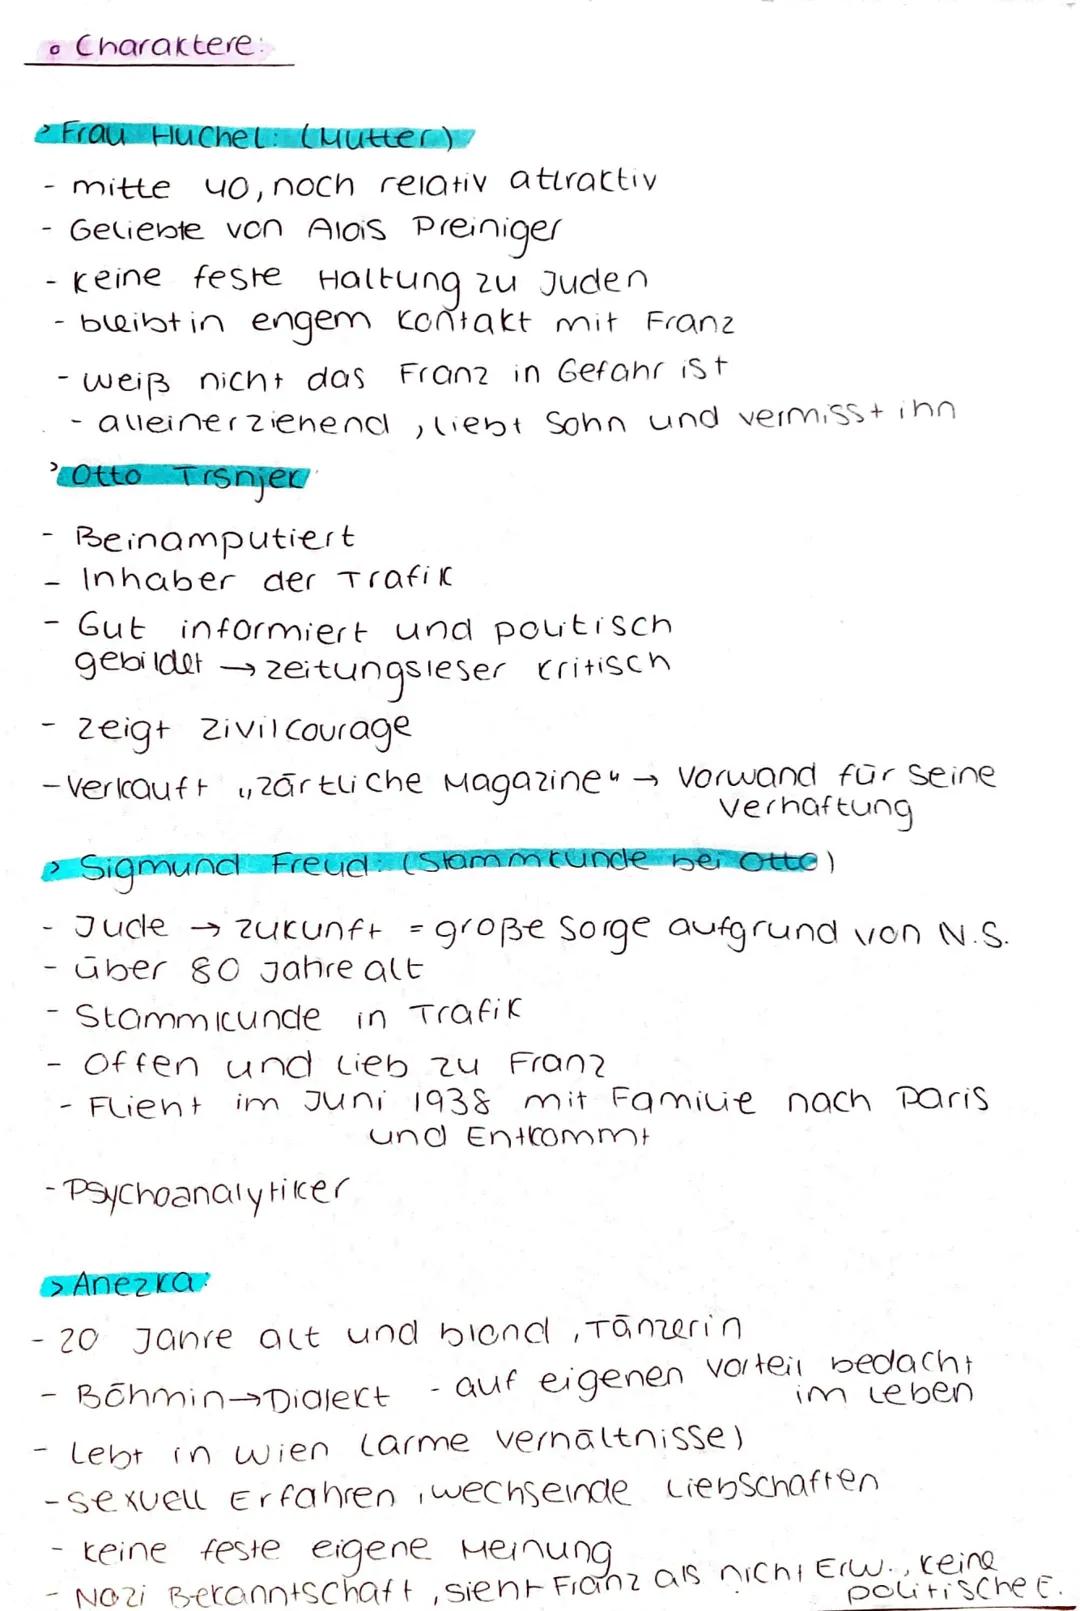 Charaktere:
> Frau Huchel: (Mutter)
- mitte 40, noch relativ attraktiv
- Geliebte von Alois Preiniger
- keine feste Haltung zu Juden
- bleibt in engem Kontakt mit Franz
- weiß nicht das Franz in Gefahr ist
- alleinerziehend, liebt Sohn und vermisst ihn
> Otto Trsnjek
- Beinamputiert
- Inhaber der Trafik
- Gut informiert und politisch
gebildet → zeitungsleser kritisch
- zeigt Zivilcourage
- verkauft „zärtliche Magazine" → Vorwand für seine
Verhaftung
> Sigmund Freud: (Stammkunde bei Otto)
- Jude → zukunft = große Sorge aufgrund von N.S.
- über 80 Jahre alt
- Stammkunde in Trafik
- Offen und Lieb zu Franz
- Flieht im Juni 1938 mit Familie nach Paris
und Entkommt
- Psychoanalytiker
> Anezka:
- 20 Jahre alt und blond, Tänzerin
- Böhmin → Dialekt - auf eigenen vorteil bedacht
im Leben
- Lebt in Wien (arme verhältnisse)
- sexuell Erfahren, wechselnde Liebschaften
- keine feste eigene Meinung
- Nazi Bekanntschaft, sieht Franz als nicht Erw., keine
politische E.